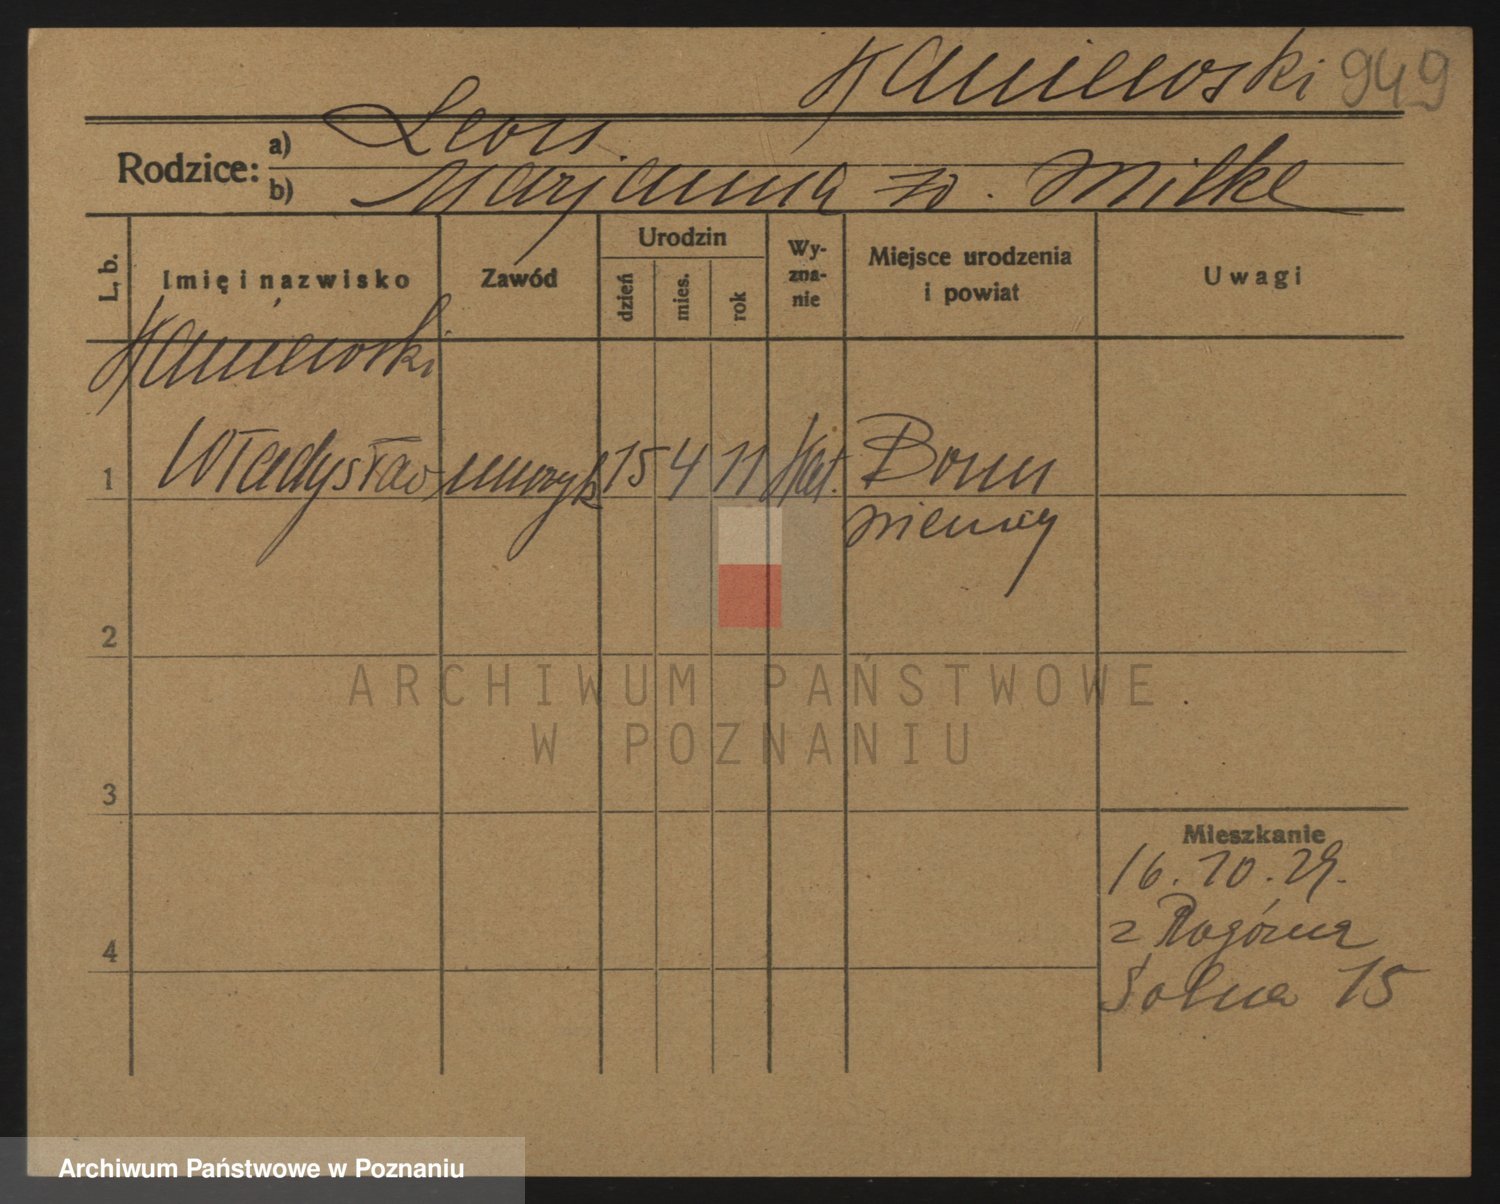 Kaniewski 949
Rodzice: a) Leon
b) Marjanna zd. Milke
L. b.
Imię i nazwisko
Zawód
Urodzin
dzień
mies.
rok
Wy-
zna-
nie
Miejsce urodzenia
i powiat
Uwagi
Kaniewski
1 Władysław muzyk 15 4 11 kat. Bonn
niemcy
2
3
4
Mieszkanie
16.10.29.
z Rogoźna
Solna 15
ARCHIWUM PAŃSTWOWE
W POZNANIU
Archiwum Państwowe w Poznaniu